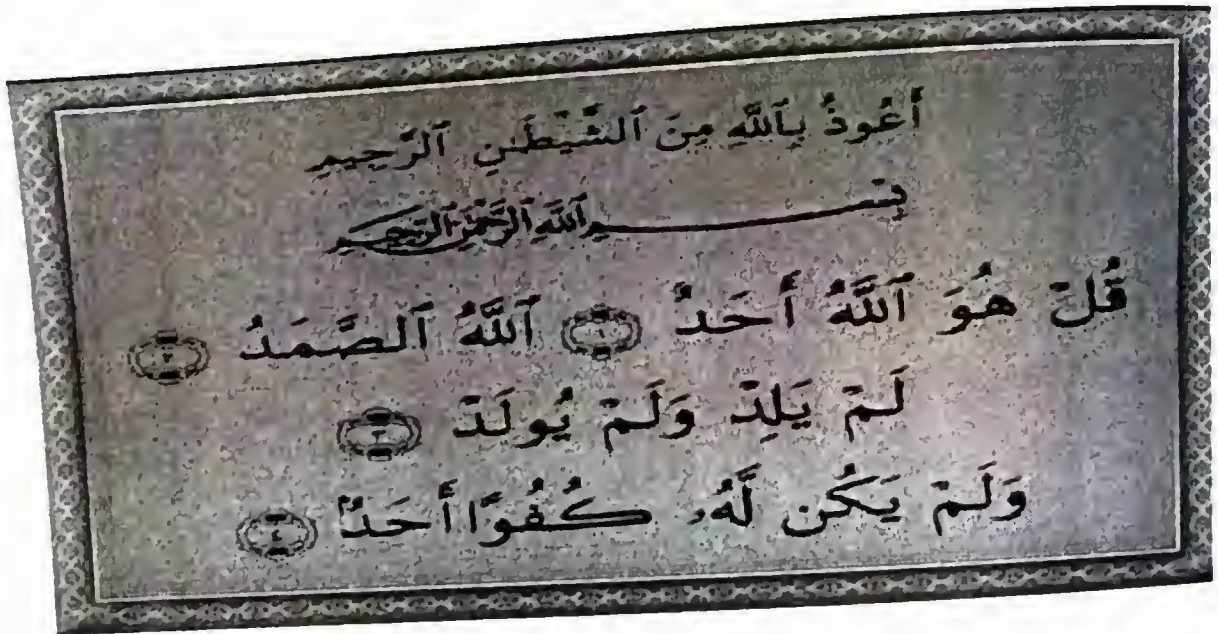 أَعُوذُ بِٱللَّهِ مِنَ ٱلشَّيْطَٰنِ ٱلرَّجِيمِ
بِسْمِ ٱللَّهِ ٱلرَّحْمَٰنِ ٱلرَّحِيمِ
قُلْ هُوَ ٱللَّهُ أَحَدٌ ١ ٱللَّهُ ٱلصَّمَدُ ٢
لَمْ يَلِدْ وَلَمْ يُولَدْ ٣
وَلَمْ يَكُن لَّهُۥ كُفُوًا أَحَدٌۢ ٤